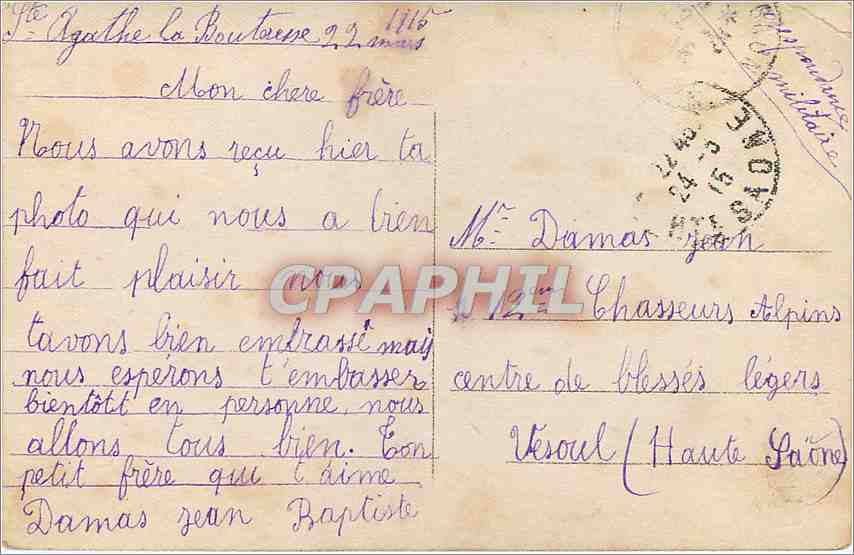 Ste Agathe la Bouteresse 22 mars 1915
Mon chere frère
Nous avons reçu hier ta
photo qui nous a bien
fait plaisir nous
tavons bien embrassé mais
nous espérons t'embasser
bientôtt en personne, nous
allons tous bien. Ton
petit frère qui t'aime
Damas jean Baptiste
correspondance
militaire
Mr Damas jean
12eme Chasseurs Alpins
centre de blessés légers
Vésoul (Haute Saône)
24 -3
15
HTE SAONE
CPAPHIL